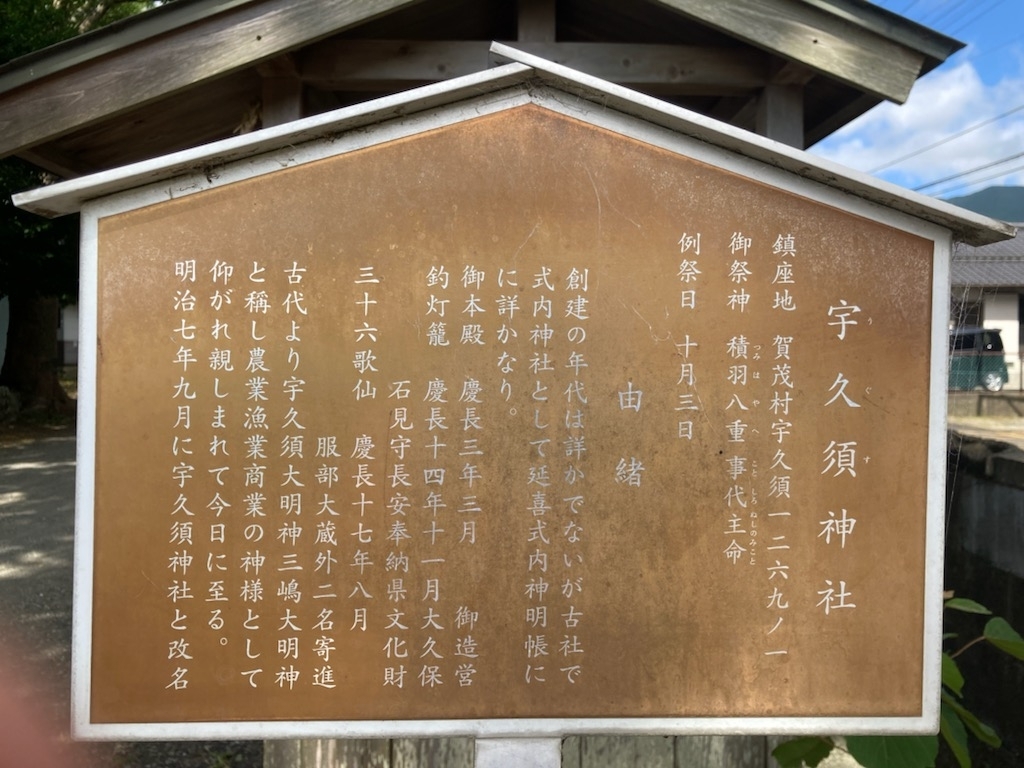 宇久須神社
うぐす
鎮座地　賀茂村宇久須一二六九ノ一
御祭神　積羽八重事代主命
つみはやへことしろぬしのみこと
例祭日　十月三日
由緒
創建の年代は詳かでないが古社で
式内神社として延喜式内神明帳に
に詳かなり。
御本殿　慶長三年三月　御造営
釣灯籠　慶長十四年十一月大久保
石見守長安奉納県文化財
三十六歌仙　慶長十七年八月
服部大蔵外二名寄進
古代より宇久須大明神三嶋大明神
と稱し農業漁業商業の神様として
仰がれ親しまれて今日に至る。
明治七年九月に宇久須神社と改名